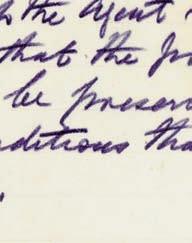 to the Agent
that the
be preser
ditions tha